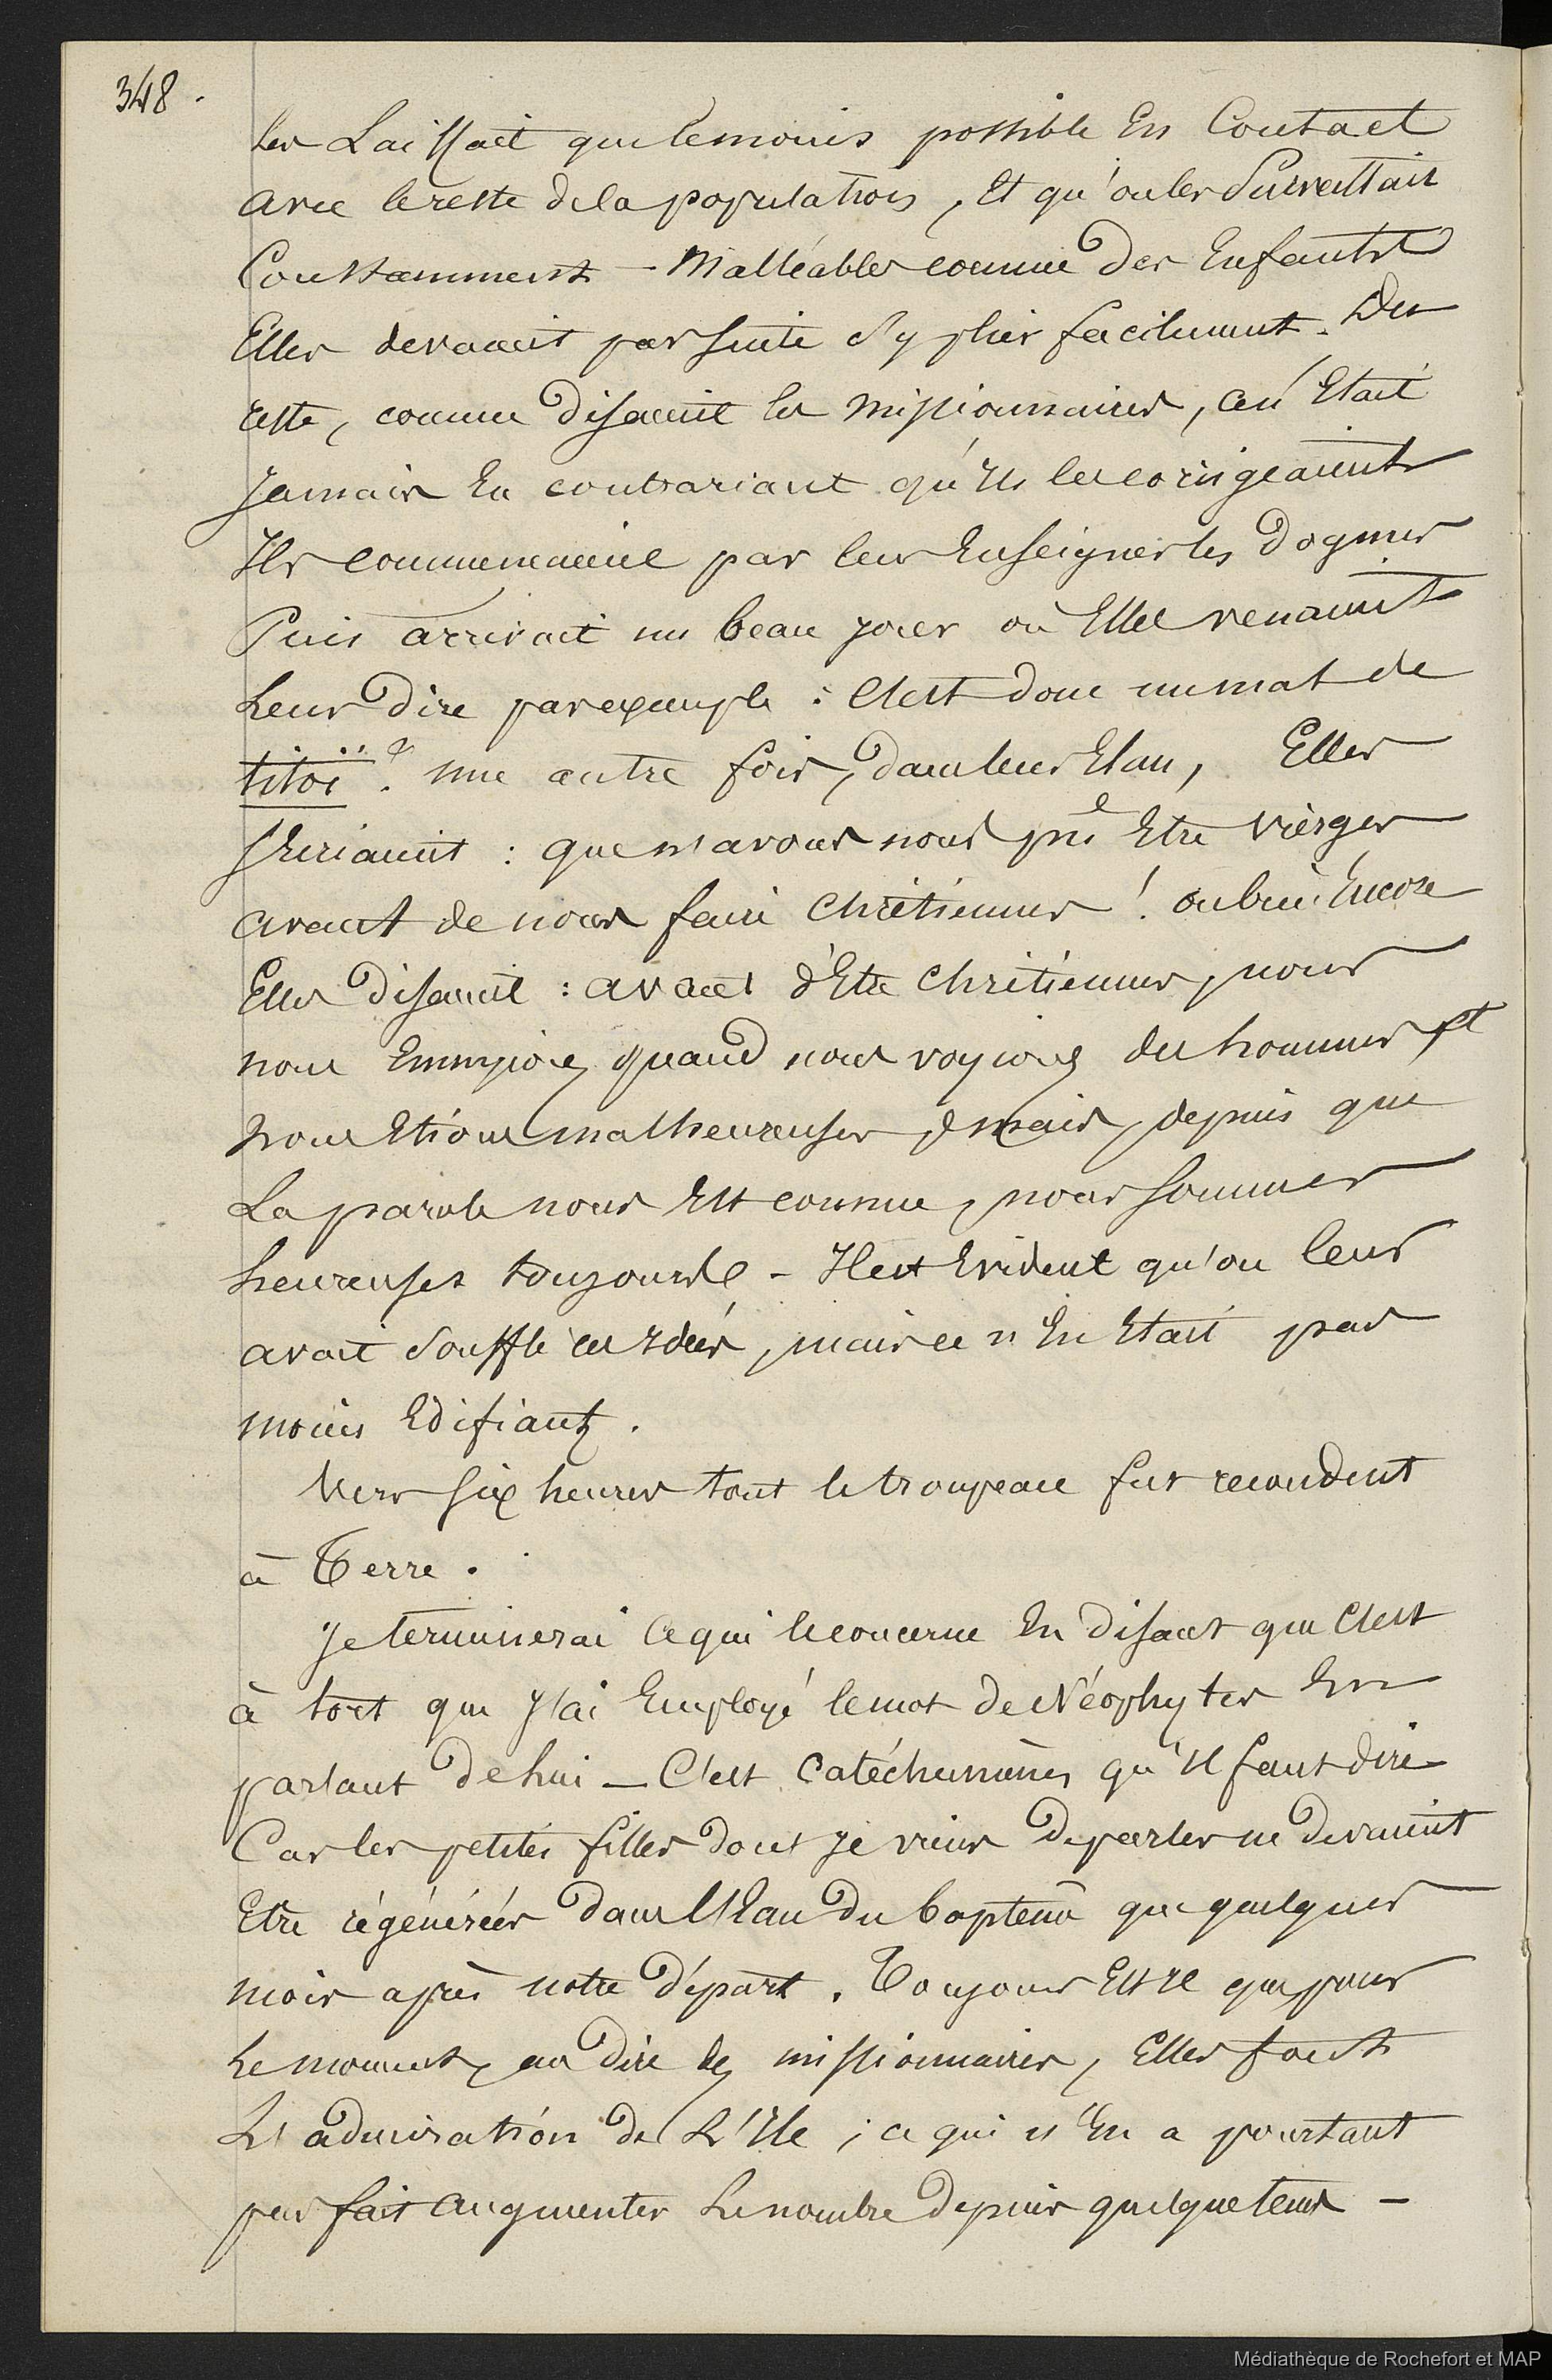 348.
les Laissait que le moins possible En Contact
avec le reste de la population, Et qu'on les Surveillait
Constamment - Malléables comme des Enfants
Elles devaient par suite s'y plier facilement. Du
reste, comme disaient les Missionnaires, ce n'Etait
Jamais En contrariant qu'Ils les corrigeaient
Ils commencaient par leur Enseigner les Dogmes
Puis arrivait un beau jour où Elles venaient
Leur Dire par exemple : C'est donc un mal de
titoï ? une autre fois, dans leur Elan, Elles
s'Ecriaient : que n'avons nous pu Etre Vièrges
avant de nous faire Chrétiennes ! ou bien Encore
Elles Disaient : avant d'Etre Chrétiennes, nous
nous Ennuyions quand nous voyions des hommes et
nous Etions malheureuses, mais, depuis que
La parole nous Est connue, nous sommes
heureuses toujours - Il est Evident qu'on leur
avait Soufflé ces Idées, mais ce n'En Etait pas
moins Edifiant.
Vers six heures tout le troupeau fut reconduit
à Terre.
Je terminerai ce qui le concerne En Disant que C'est
à tort que J'ai Employé le mot de Néophytes En
parlant de lui - C'est Catéchumènes qu'Il faut dire
Car les petites filles dont je viens de parler ne devaient
Etre régénérées dans l'Eau Du baptême que quelques
mois après notre Départ. Toujours Est Il que pour
Le moment, au dire des missionnaires, Elles font
L'admiration de L'Ile ; ce qui n'En a pourtant
pas fait augmenter Le nombre depuis quelque tems -
Médiathèque de Rochefort et MAP